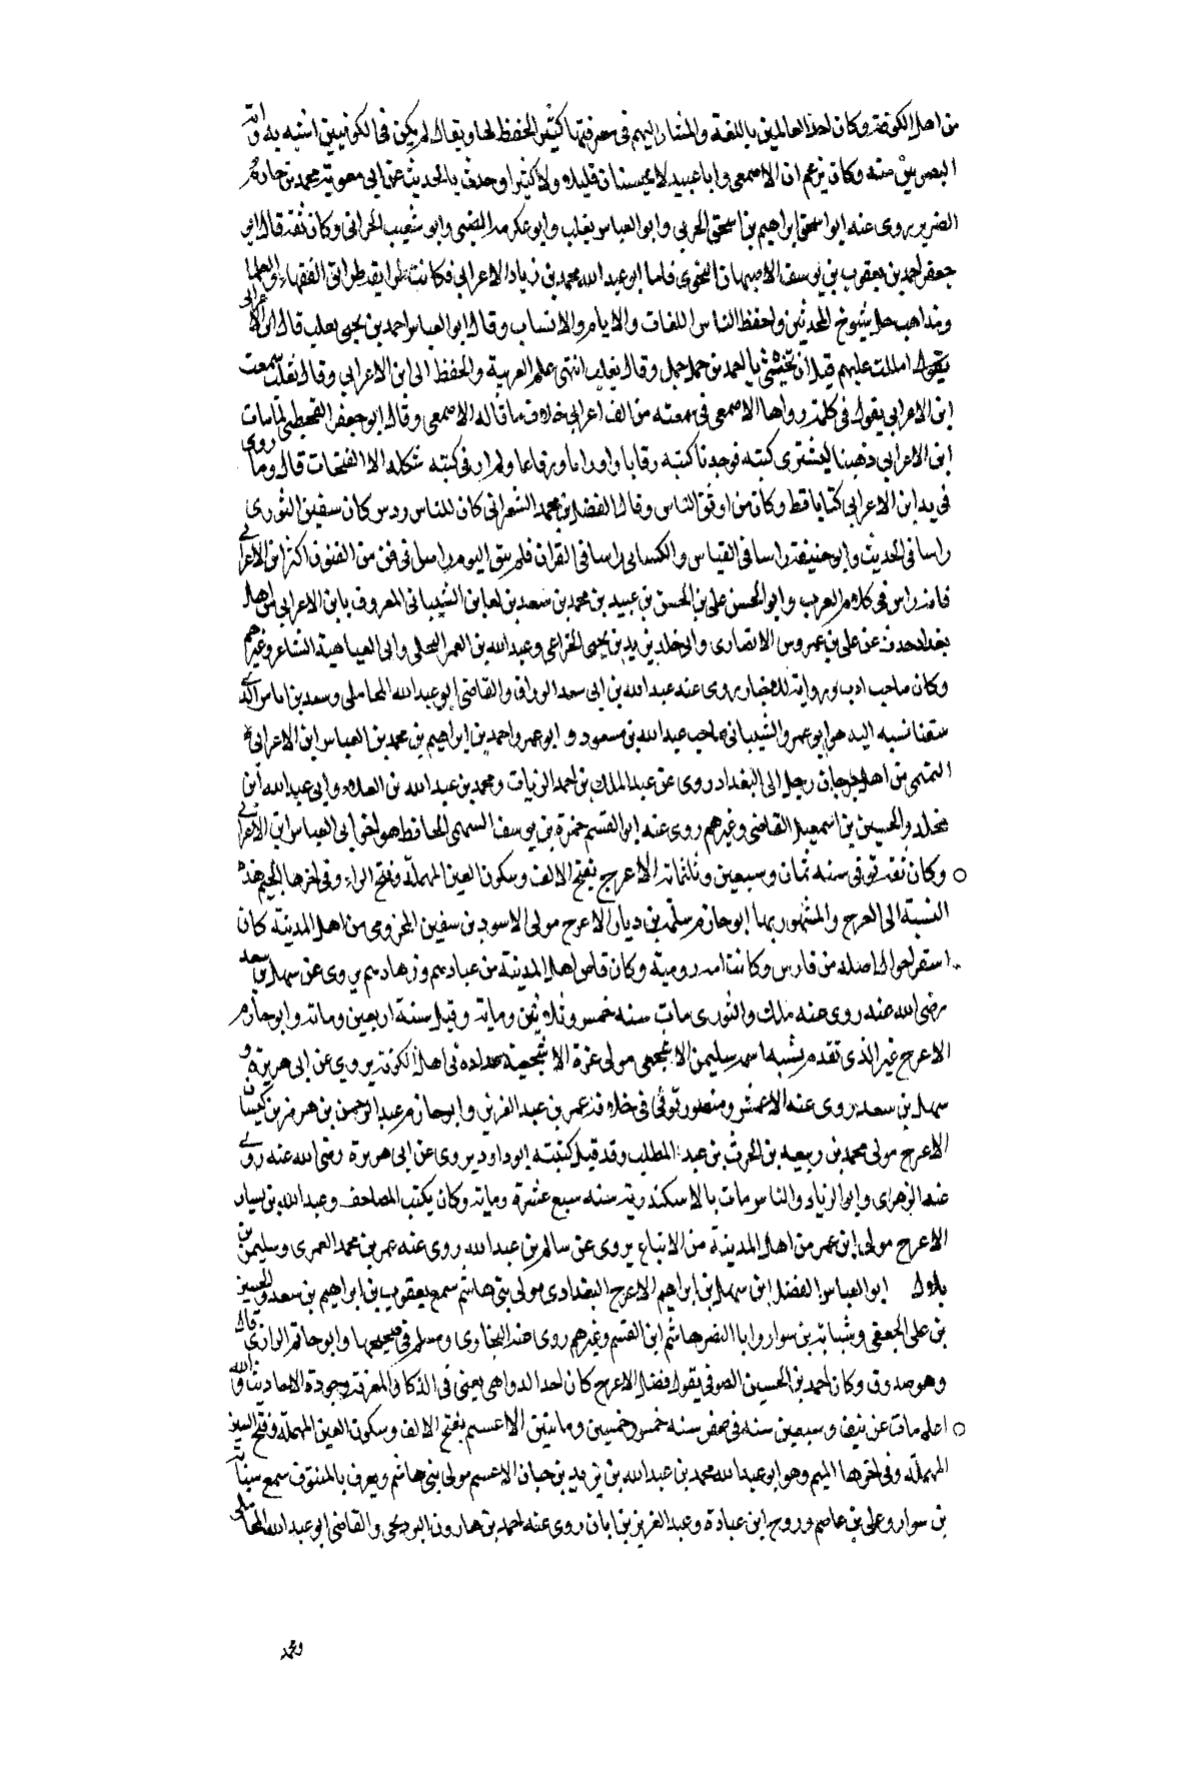 من اهل الكوفة وكان احد العالمين باللغة والمشار اليهم فى معرفتها كثير الحفظ لها ويقال لم يكن فى الكوفيين اشبه برواية
البصريين منه وكان يزعم ان الاصمعى وابا عبيدة لا يحسنان قليلا ولا كثيرا وحدث بالحديث عن ابى معوية محمد بن خازم
الضرير روى عنه ابو اسحق ابراهيم بن اسحق الحربى وابو العباس ثعلب وابو عكرمة الضبى وابو شعيب الحرانى وكان ثقة قال ابو
جعفر احمد بن يعقوب بن يوسف الاصبهانى النحوى فاما ابو عبد الله محمد بن زياد الاعرابى فكانت طرايقه طرائق الفقهاء والعلما
ومذاهب جل شيوخ المحدثين واحفظ الناس اللغات والايام والانساب وقال ابو العباس احمد بن يحيى ثعلب قال ابن الاعرابى
امللت عليهم قبل ان تجيئنى يا احمد بن حمل جمل وقال ثعلب انتهى علم العربية والحفظ الى ابن الاعرابى وقال ثعلب سمعت
ابن الاعرابى يقول فى كلمة رواها الاصمعى فى سمعته من الف اعرابى خلاف ما قاله الاصمعى وقال ابو جعفر القحيطى لما مات
ابن الاعرابى ذهبنا ليشترى كتبه فوجدنا كتبه رقابا واوراما ورقاعا ولم ار فى كتبه شكله الا الفتحات قال وما روى
فى يد ابن الاعرابى كتابا قط وكان من اوثق الناس وقال الفضل بن محمد الشعرانى كان للناس روس كان سفين الثورى
راسا فى الحديث وابو حنيفة راسا فى القياس والكسايى راسا فى القران فلم يبق اليوم راس فى فن من الفنون اكثر ابن الاعرابى
فانه راس فى كلام العرب وابو الحسن على بن الحسن بن عبيد بن محمد بن سعد بن لعابن الشيبانى المعروف بابن الاعرابى من اهل
بغداد حدث عن على بن عمروس الانصارى وابى خلد بن يزيد بن يحيى الخزاعى وعبد الله بن العمر البجلى وابى العتاهية الشاعر وغيرهم
وكان صاحب ادب ورواية للاخبار روى عنه عبد الله بن ابى سعد الوراق والقاضى ابو عبد الله المحاملى وسعد بن اياس الذى
سقنا نسبه اليه هو ابو عمرو الشيبانى صاحب عبد الله بن مسعود و ابو عمرو احمد بن ابراهيم بن محمد بن العباس ابن الاعرابى
السهمى من اهل جرجان رحل الى البغداد روى عن عبد الملك بن احمد الزيات ومحمد بن عبد الله بن العلاء وابى عبد الله ابن
مخلد والحسين بن اسمعيل القاضى وغيرهم روى عنه ابو القسم حمزة بن يوسف السهمى الحافظ هو اخو ابى العباس ابن الاعرابى
وكان ثقة توفى سنه ثمان وسبعين وثلثمائة الاعرج بفتح الالف وسكون العين المهملة وفتح الراء وفى اخرها الجيم هذه
النسبة الى العرج والمشهور بها ابو حازم سلمة بن دينار الاعرج مولى الاسود بن سفين المخزومى من اهل المدينة كان
اصله من فارس وكانت امه رومية وكان قاص اهل المدينة من عبادهم وزهادهم يروى عن سهل بن سعد
رضى الله عنه روى عنه ملك والثورى مات سنه خمس وثلاثين ومائة وقيل سنة اربعين ومائة وابو حازم
الاعرج غير الذى تقدم يشبه اسمه سليمن الاشجعى مولى عزة الاشجعية عداده فى اهل الكوفة يروى عن ابى هريرة و
سهل بن سعد روى عنه الاعمش ومنصور توفى فى خلافة عمر بن عبد العزيز وابو حازم عبد الرحمن بن هرمز بن كيسان
الاعرج مولى محمد بن ربيعه بن الحرث بن عبد المطلب وقد قيل كنيته ابو داود يروى عن ابى هريرة رضى الله عنه روى
عنه الزهرى وابو الزناد والناس مات بالاسكندرية سنه سبع عشرة ومائة وكان يكتب المصاحف وعبد الله بن يسار
الاعرج مولى ابن عمر من اهل المدينة من الاتباع يروى عن سالم بن عبد الله روى عنه عمر بن محمد العمرى وسليمن بن
بلال ابو العباس الفضل ابن سهل بن ابراهيم الاعرج البغدادى مولى بنى هاشم سمع يعقوب بن ابراهيم بن سعد والحسين
بن على الجعفى وشبابة بن سوار وابا النضر هاشم ابن القسم وغيرهم روى عنه البخارى ومسلم فى صحيحيهما وابو حاتم الرازى وقال
وهو صدوق وكان احمد بن الحسين الصوفى يقول فضل الاعرج كان احد الدواهى يعنى فى الذكا والمعرفة وجودة الاحاديث والله
اعلم مات عن نيف وسبعين سنه فى صفر سنه خمس وخمسين ومائتين الاعسم بفتح الالف وسكون العين المهملة وفتح السين
المهملة وفى اخرها الميم وهو ابو عبد الله محمد بن عبد الله بن يزيد بن حبان الاعسم مولى بنى هاشم ويعرف بالمنتوف سمع شبابة
بن سوار وعلى بن عاصم وروح ابن عبادة وعبد العزيز بن ابان روى عنه احمد بن هارون البرديجى والقاضى ابو عبد الله المحاملى
ومحمد